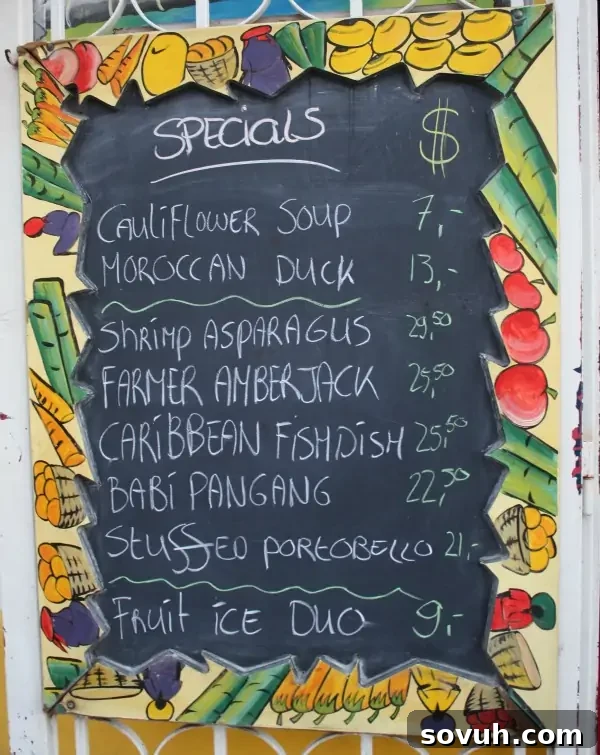 SPECIALS $
CAULIFLOWER SOUP 7,-
MOROCCAN DUCK 13,-
Shrimp ASPARAGUS 29,50
FARMER AMBERJACK 25,50
CARIBBEAN FISHDISH 25,50
BABI PANGANG 22,50
STUFFED PORTOBELLO 21,-
FRUIT ICE DUO 9,-
sovuh.com